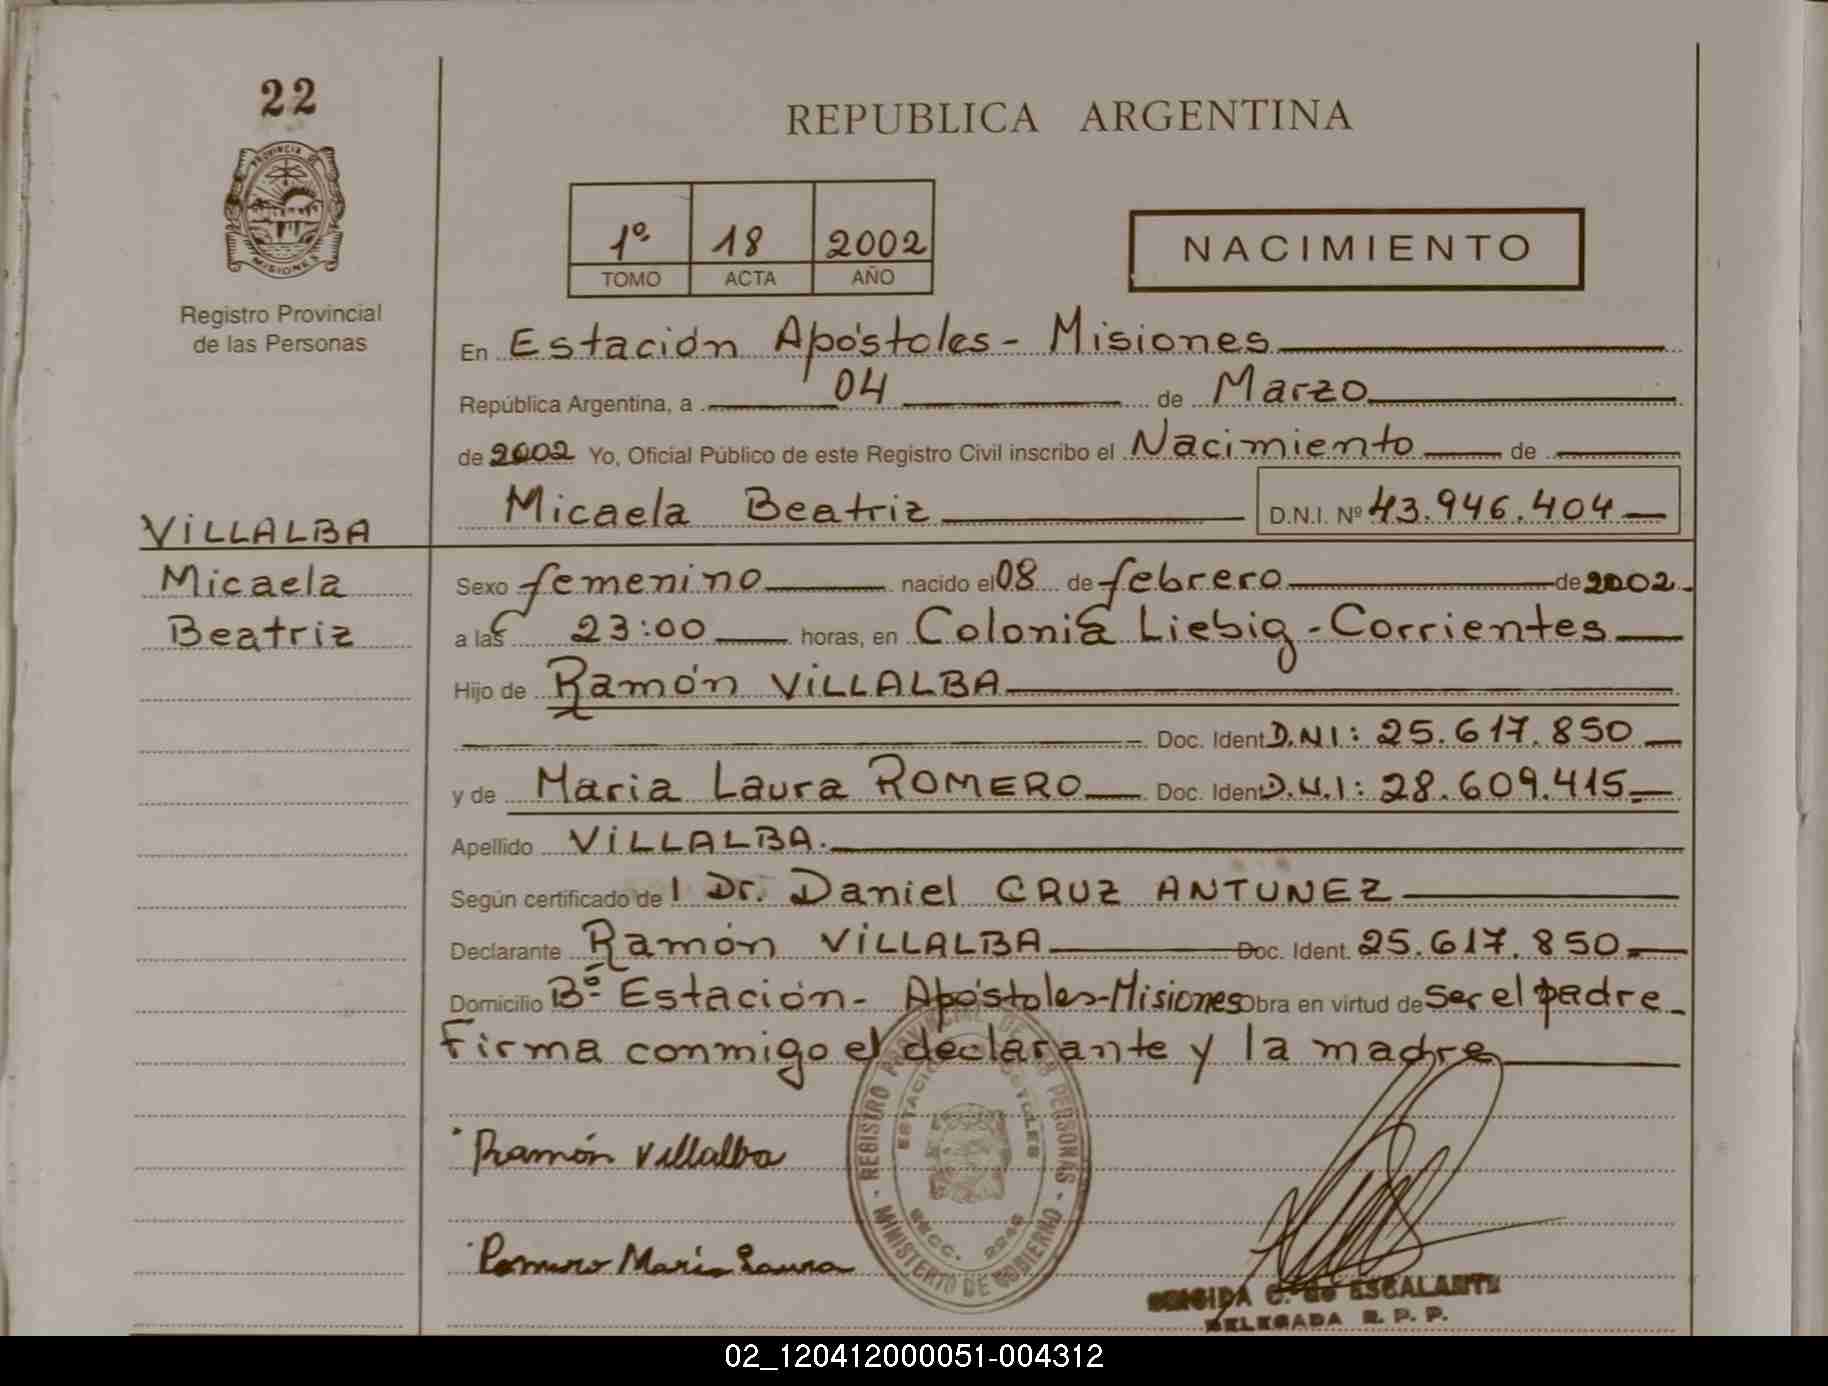 22
PROVINCIA DE
MISIONES
Registro Provincial
de las Personas
REPUBLICA ARGENTINA
1º 18 2002
TOMO ACTA AÑO
NACIMIENTO
En Estación Apóstoles - Misiones
República Argentina, a 04 de Marzo
de 2002 Yo, Oficial Público de este Registro Civil inscribo el Nacimiento de
Micaela Beatriz D.N.I. Nº 43.946.404
VILLALBA
Micaela
Beatriz
Sexo femenino nacido el 08 de febrero de 2002
a las 23:00 horas, en Colonia Liebig - Corrientes
Hijo de Ramón VILLALBA
Doc. Ident D.N.I: 25.617.850
y de Maria Laura ROMERO Doc. Ident D.N.I: 28.609.415
Apellido VILLALBA.
Según certificado de l Dr. Daniel CRUZ ANTUNEZ
Declarante Ramón VILLALBA Doc. Ident. 25.617.850
Domicilio Bº Estación - Apóstoles-Misiones Obra en virtud de Ser el padre
Firma conmigo el declarante y la madre
Ramón Villalba
Romero María Laura
REGISTRO PROVINCIAL DE LAS PERSONAS
MINISTERIO DE GOBIERNO
ESTACION APOSTOLES
SECC. 2246
C. de ESCALANTE
DELEGADA R. P. P.
02_120412000051-004312